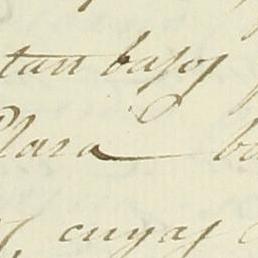 tan bajos
Clara ba
cuyas